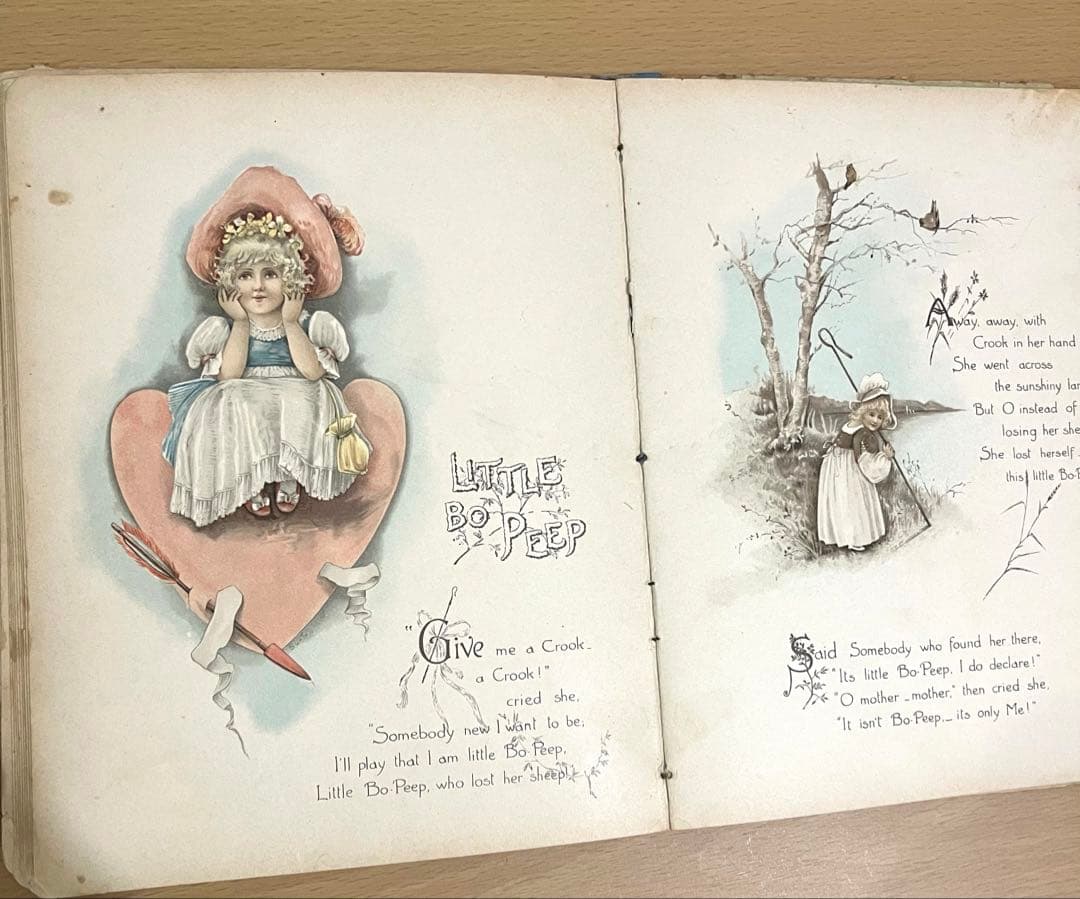 LITTLE
BO PEEP
"Give me a Crook_
a Crook!"
cried she,
"Somebody new I want to be;
I'll play that I am little Bo-Peep,
Little Bo-Peep, who lost her sheep!"
Away, away, with
Crook in her hand
She went across
the sunshiny
But O instead of
losing her
She lost herself_
this little
Said Somebody who found her there,
"Its little Bo-Peep, I do declare!"
"O mother_mother," then cried she,
"It isn't Bo-Peep,_ its only Me!"